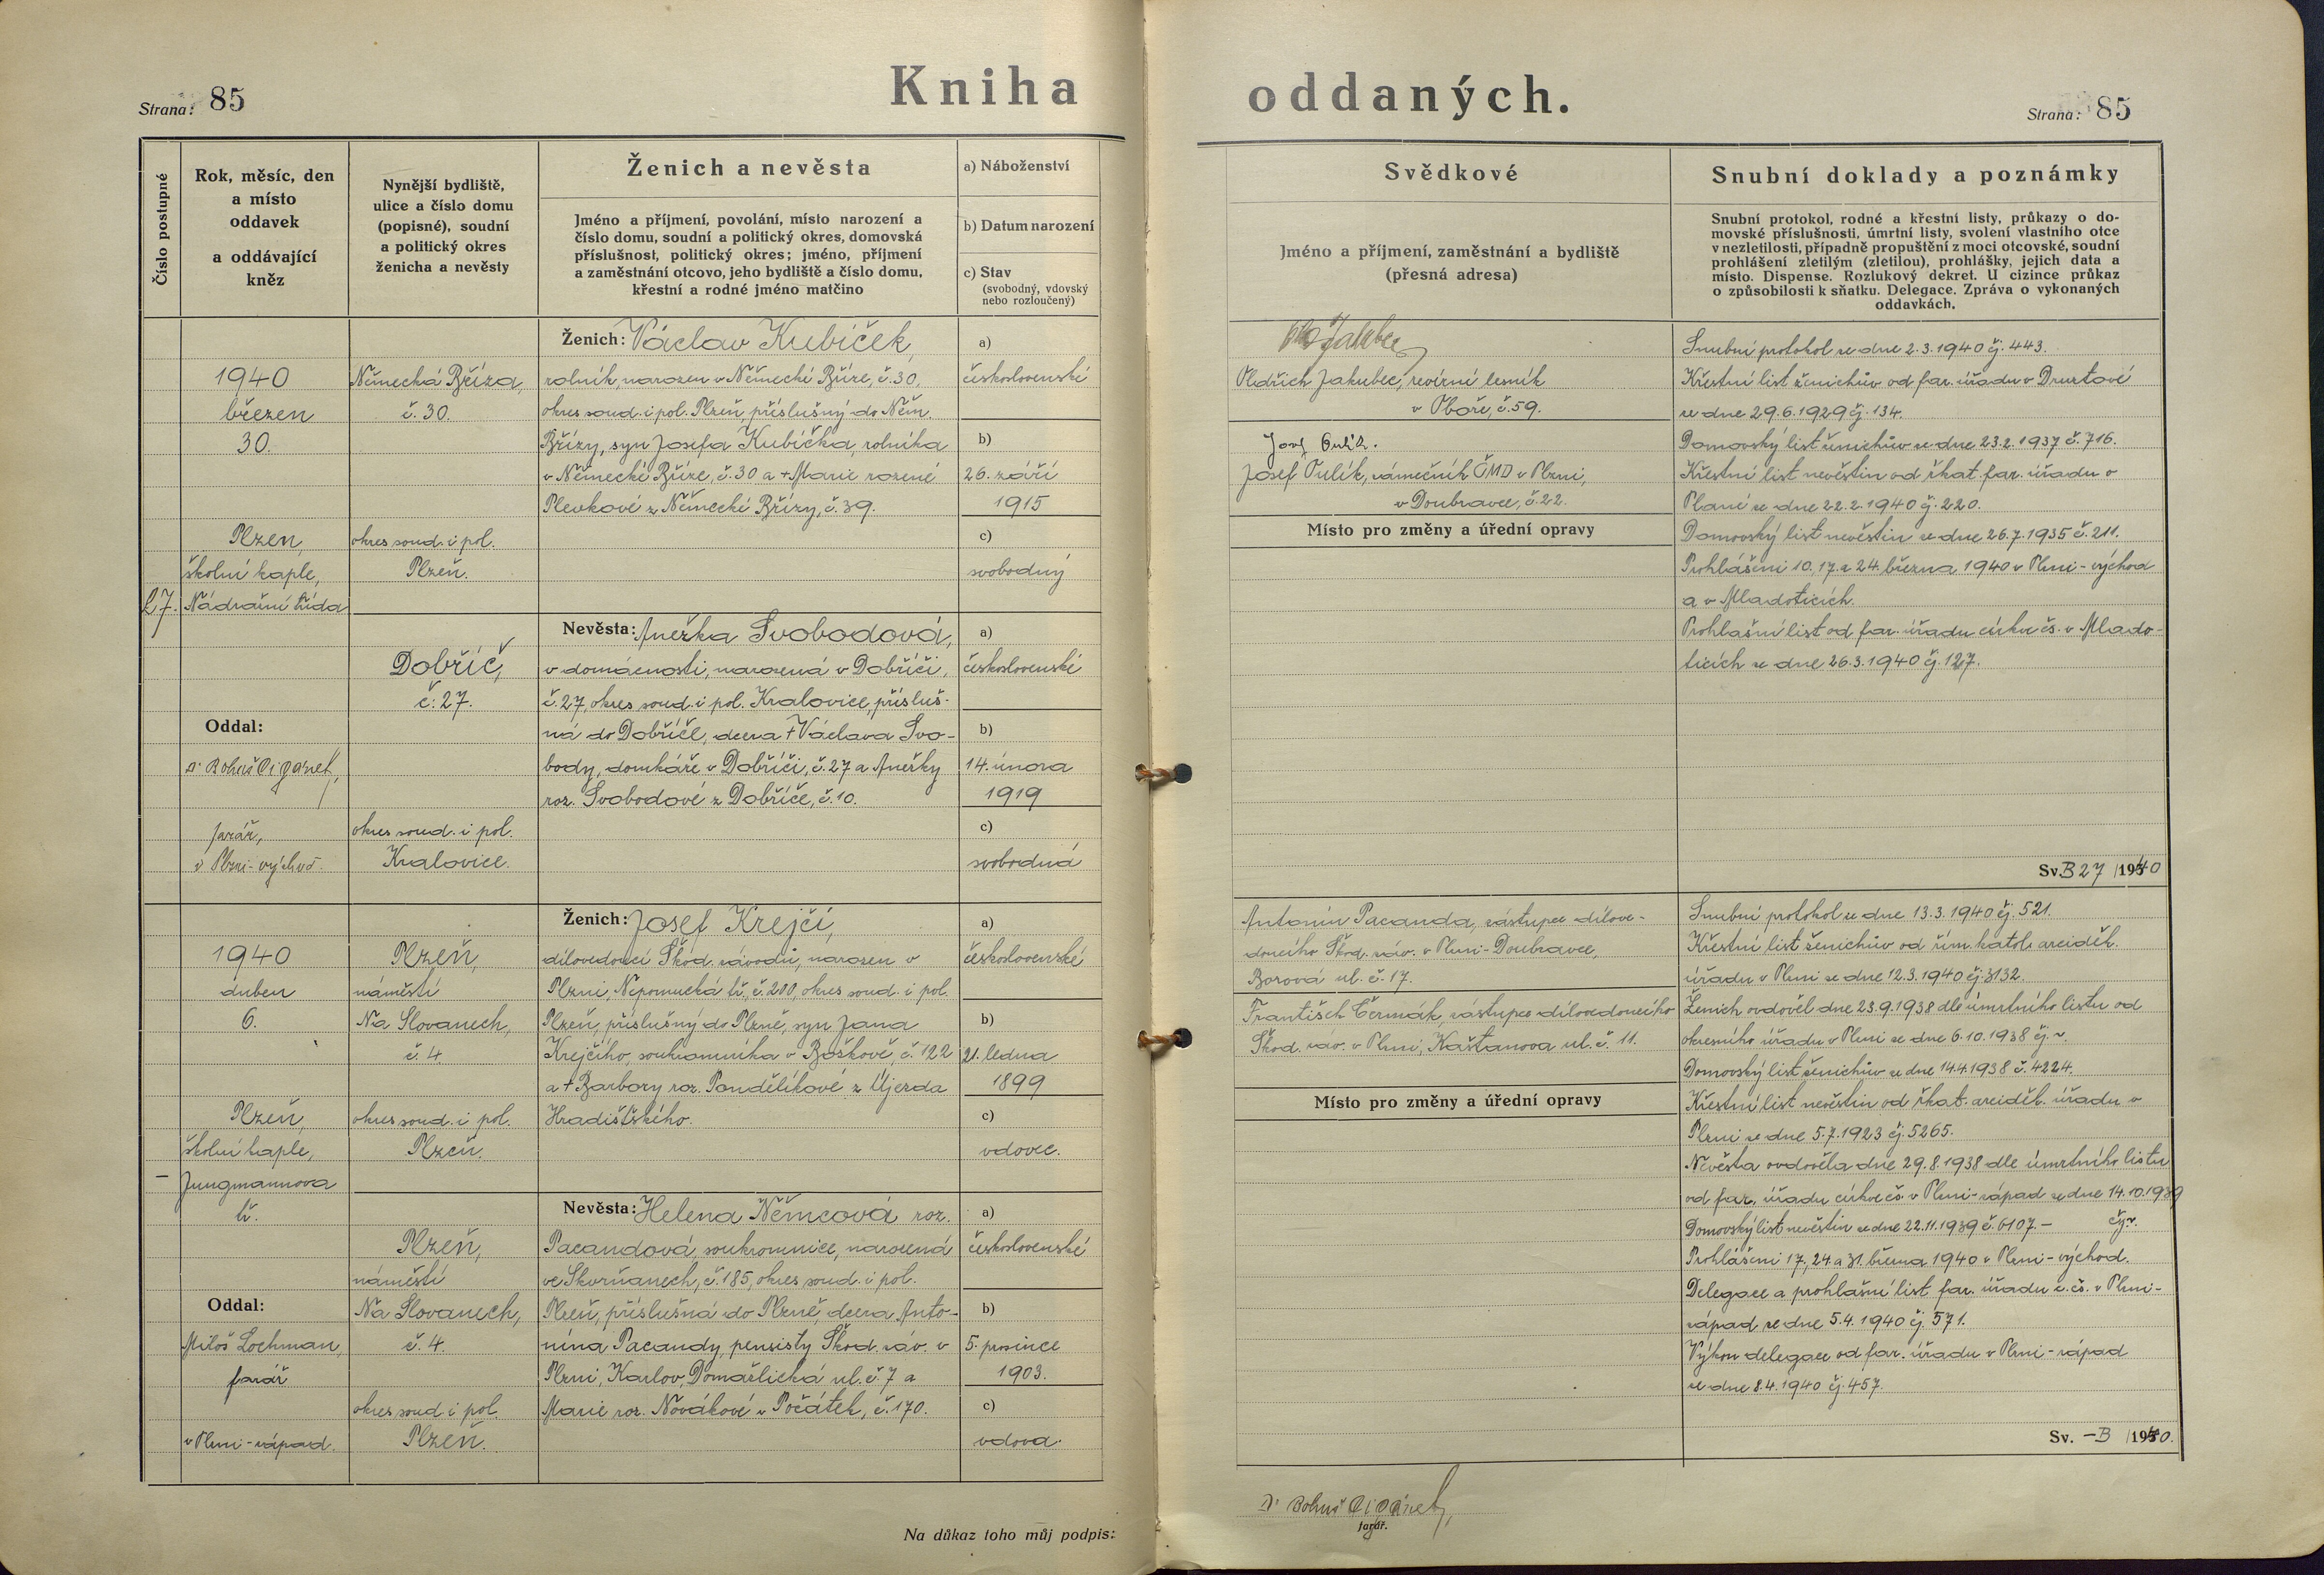 Strana: 85
Kniha oddaných.
Strana: 85
Číslo postupné
Rok, měsíc, den
a místo
oddavek
a oddávající
kněz
Nynější bydliště,
ulice a číslo domu
(popisné), soudní
a politický okres
ženicha a nevěsty
Ženich a nevěsta
Jméno a příjmení, povolání, místo narození a
číslo domu, soudní a politický okres, domovská
příslušnost, politický okres; jméno, příjmení
a zaměstnání otcovo, jeho bydliště a číslo domu,
křestní a rodné jméno matčino
a) Náboženství
b) Datum narození
c) Stav
(svobodný, vdovský
nebo rozloučený)
Svědkové
Jméno a příjmení, zaměstnání a bydliště
(přesná adresa)
Snubní doklady a poznámky
Snubní protokol, rodné a křestní listy, průkazy o do-
movské příslušnosti, úmrtní listy, svolení vlastního otce
v nezletilosti, případně propuštění z moci otcovské, soudní
prohlášení zletilým (zletilou), prohlášky, jejich data a
místo. Dispense. Rozlukový dekret. U cizince průkaz
o způsobilosti k sňatku. Delegace. Zpráva o vykonaných
oddavkách.
27.
1940
březen
30.
Plzen,
školní kaple,
Nádražní třída
Oddal:
Dr Bohuš Cigánek,
farář,
v Plzni-vých
Německá Bříza,
č. 30.
okres soud. i pol.
Plzeň.
Dobříč,
č. 27.
okres soud. i pol.
Kralovice.
Ženich: Václav Kubíček,
rolník, narozen v Německé Bříze, č. 30,
okres soud. i pol. Plzeň, příslušný do Něm.
Břízy, syn Josefa Kubíčka, rolníka
v Německé Bříze, č. 30 a + Marie rozené
Plevkové z Německé Břízy, č. 39.
Nevěsta: Anežka Svobodová,
v domácnosti, narozená v Dobříči,
č. 27, okres soud. i pol. Kralovice, přísluš-
ná do Dobříče, dcera + Václava Svo-
body, domkáře v Dobříči, č. 27 a Anežky
roz. Svobodové z Dobříče, č. 10.
a)
československé
b)
26. září
1915
c)
svobodný
a)
československé
b)
14. února
1919
c)
svobodná
Oldřich Jakubec, revírní lesník
v Oboře, č. 59.
Josef Tulík, zámečník ČMD v Plzni,
v Doubravce, č. 22.
Místo pro změny a úřední opravy
Snubní protokol ze dne 2.3.1940 čj. 443.
Křestní list ženichův od far. úřadu v Druztové
ze dne 29.6.1929 čj. 134.
Domovský list ženichův ze dne 23.2.1937 č. 716.
Křestní list nevěstin od řkat. far. úřadu v
Plané ze dne 22.2.1940 čj. 220.
Domovský list nevěstin ze dne 26.7.1935 č. 211.
Prohlášeni 10. 17. a 24. března 1940 v Plzni-východ
a v Mladoticích.
Prohlašní list od far. úřadu církve čs. v Mlado-
ticích ze dne 26.3.1940 čj. 127.
Sv. B 27 /1940
1940
duben
6.
Plzeň,
školní kaple,
– Jungmannova
tř.
Oddal:
Miloš Lochman,
farář
v Plzni-západ.
Plzeň,
náměstí
Na Slovanech,
č. 4
okres soud. i pol.
Plzeň.
Plzeň,
náměstí
Na Slovanech,
č. 4.
okres soud. i pol.
Plzeň.
Ženich: Josef Krejčí,
dílovedoucí Škod. závodů, narozen v
Plzni, Nepomucká tř., č. 200, okres soud. i pol.
Plzeň, příslušný do Plzně, syn Jana
Krejčího, soukromníka v Božkově, č. 122
a + Barbory roz. Pondělíkové z Újezda
Hradišťského.
Nevěsta: Helena Němcová roz.
Pacandová, soukromnice, narozená
ve Skvrňanech, č. 185, okres soud. i pol.
Plzeň, příslušná do Plzně, dcera Anto-
nína Pacandy, pensisty Škod. záv. v
Plzni, Karlov, Domažlická ul. č. 7 a
Marie roz. Novákové z Počátek, č. 170.
a)
československé
b)
21. ledna
1899
c)
vdovec.
a)
československé
b)
5. prosince
1903.
c)
vdova.
Antonín Pacanda, zástupce dílove-
doucího Škod. záv. v Plzni-Doubravce,
Borová ul. č. 17.
František Čermák, zástupce dílovedoucího
Škod. záv. v Plzni, Kaštanova ul. č. 11.
Místo pro změny a úřední opravy
Snubní protokol ze dne 13.3.1940 čj. 521.
Křestní list ženichův od řím. katol. arciděk.
úřadu v Plzni ze dne 12.3.1940 čj. 3132.
Ženich ovdověl dne 23.9.1938 dle úmrtního listu od
okresního úřadu v Plzni ze dne 6.10.1938 čj. ~.
Domovský list ženichův ze dne 14.4.1938 č. 4224.
Křestní list nevěstin od řkat. arciděk. úřadu v
Plzni ze dne 5.7.1923 čj. 5265.
Nevěsta ovdověla dne 29.8.1938 dle úmrtního listu
od far. úřadu církve čs. v Plzni-západ ze dne 14.10.1939
čj. ~.
Domovský list nevěstin ze dne 22.11.1939 č. 6107. –
Prohlášeni 17, 24 a 31. března 1940 v Plzni-východ.
Delegace a prohlašní list far. úřadu c. čs. v Plzni-
západ ze dne 5.4.1940 čj. 571.
Výkon delegace od far. úřadu v Plzni-západ
ze dne 8.4.1940 čj. 457.
Sv. –B /1940.
Na důkaz toho můj podpis:
Dr Bohuš Cigánek,
farář.